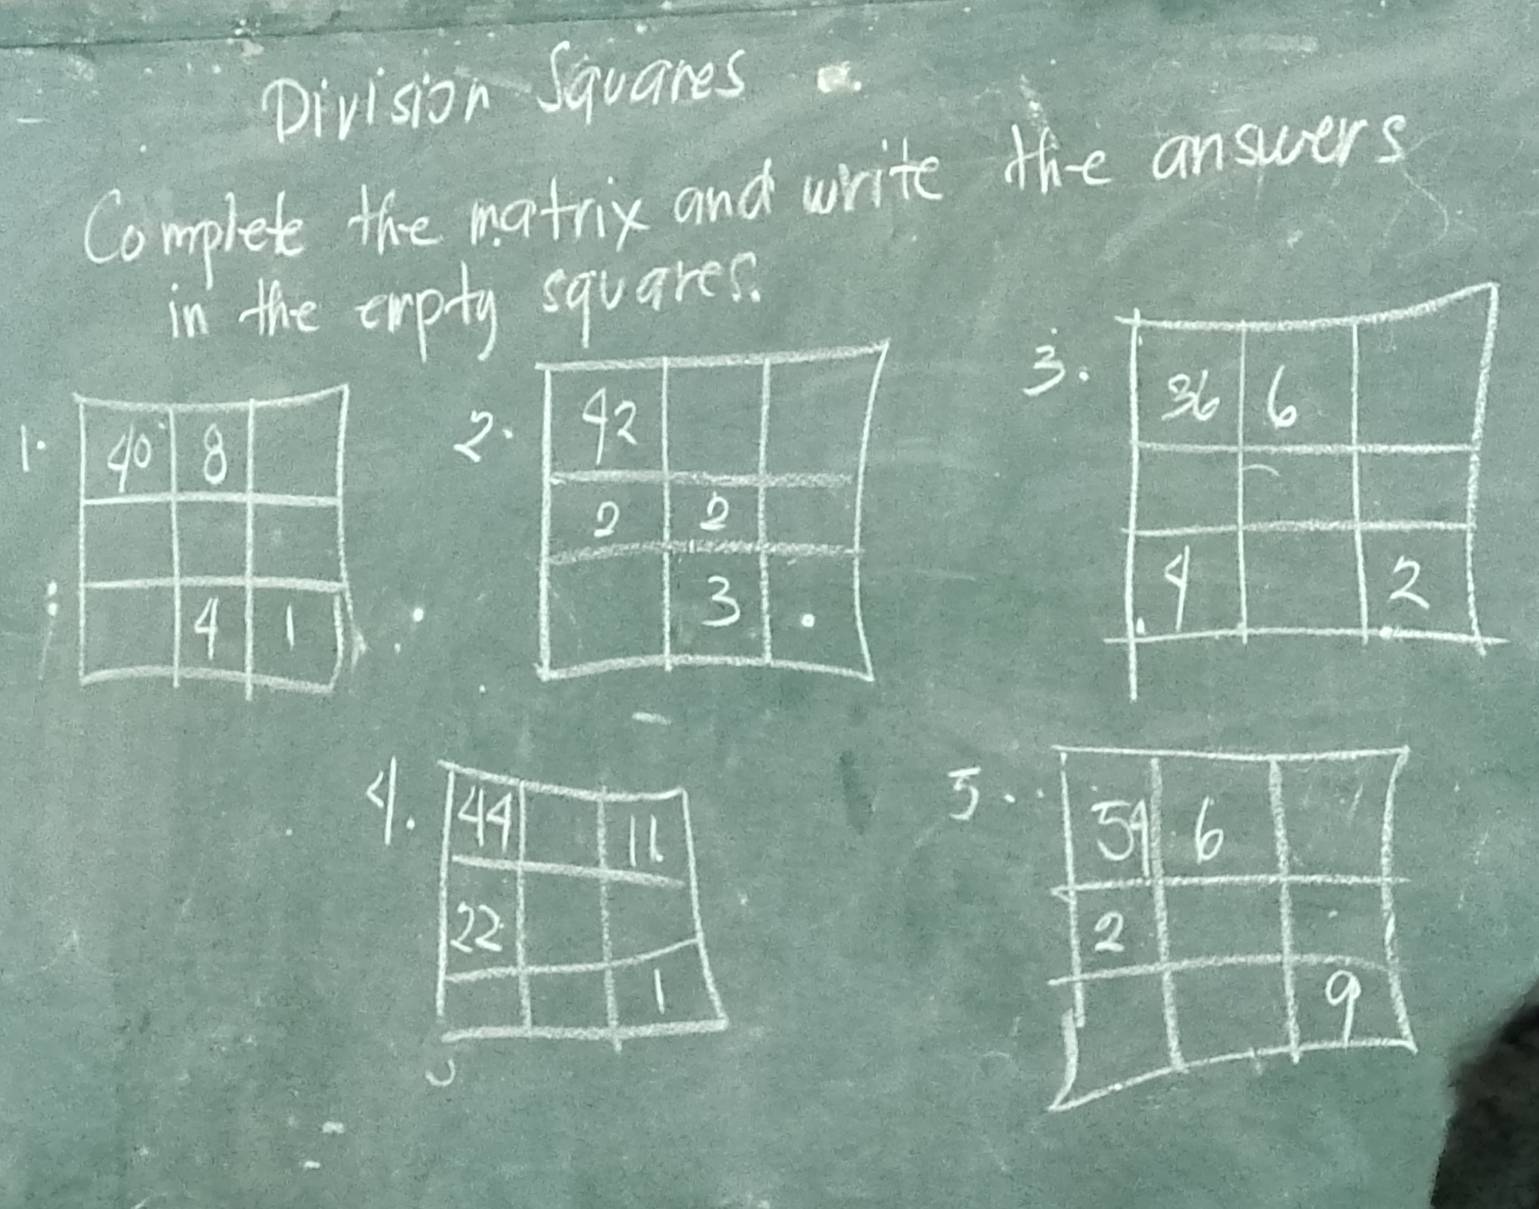 Division Squares
Complete the matrix and write the answers
in the empty squares.
1. 40 8
4 1
2. 42
2 2
3
3. 36 6
4 2
4. 44 11
22
1
5. 54 6
2
9